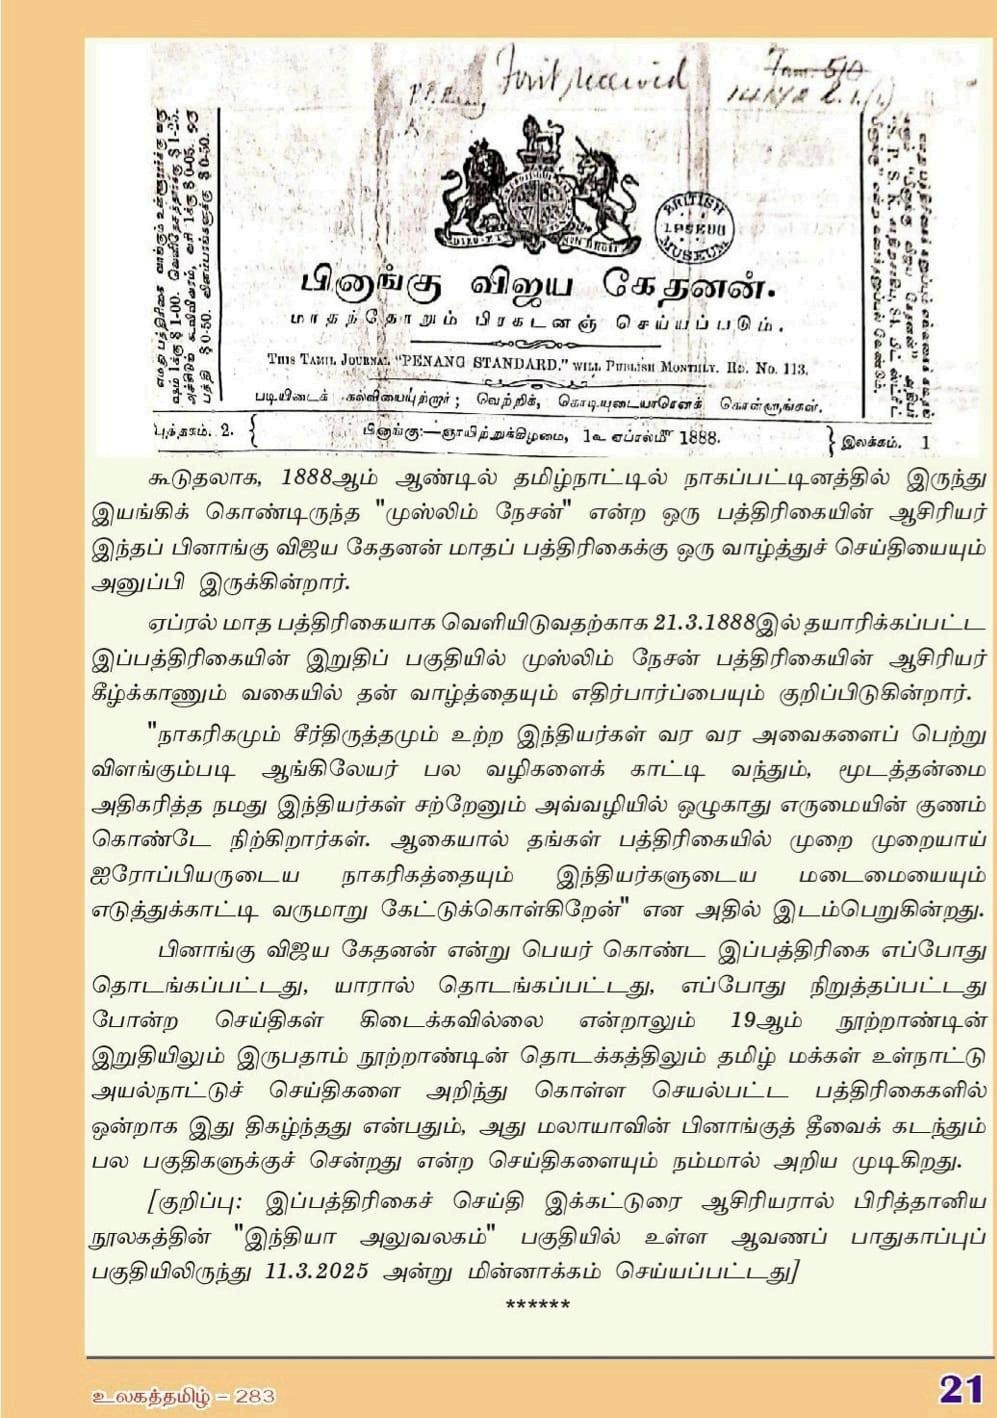 First received
Tam. 510
BRITISH
19SE88
MUSEUM
பினாங்கு விஜய கேதனன்.
மாதந்தோறும் பிரகடனஞ் செய்யப்படும்.
THIS TAMIL JOURNAL "PENANG STANDARD." WILL PUBLISH MONTHLY. RD. NO. 113.
படியிடைக் கல்வியையுற்றார்; வெற்றிக், கொடியுடையாரெனக் கொள்ளுங்கள்.
புத்தகம். 2. பினாங்கு:—ஞாயிற்றுக்கிழமை, 1௳ ஏப்ரல்மீ 1888. இலக்கம். 1
கூடுதலாக, 1888ஆம் ஆண்டில் தமிழ்நாட்டில் நாகப்பட்டினத்தில் இருந்து
இயங்கிக் கொண்டிருந்த "முஸ்லிம் நேசன்" என்ற ஒரு பத்திரிகையின் ஆசிரியர்
இந்தப் பினாங்கு விஜய கேதனன் மாதப் பத்திரிகைக்கு ஒரு வாழ்த்துச் செய்தியையும்
அனுப்பி இருக்கின்றார்.
ஏப்ரல் மாத பத்திரிகையாக வெளியிடுவதற்காக 21.3.1888இல் தயாரிக்கப்பட்ட
இப்பத்திரிகையின் இறுதிப் பகுதியில் முஸ்லிம் நேசன் பத்திரிகையின் ஆசிரியர்
கீழ்க்காணும் வகையில் தன் வாழ்த்தையும் எதிர்பார்ப்பையும் குறிப்பிடுகின்றார்.
"நாகரிகமும் சீர்திருத்தமும் உற்ற இந்தியர்கள் வர வர அவைகளைப் பெற்று
விளங்கும்படி ஆங்கிலேயர் பல வழிகளைக் காட்டி வந்தும், மூடத்தன்மை
அதிகரித்த நமது இந்தியர்கள் சற்றேனும் அவ்வழியில் ஒழுகாது எருமையின் குணம்
கொண்டே நிற்கிறார்கள். ஆகையால் தங்கள் பத்திரிகையில் முறை முறையாய்
ஐரோப்பியருடைய நாகரிகத்தையும் இந்தியர்களுடைய மடைமையையும்
எடுத்துக்காட்டி வருமாறு கேட்டுக்கொள்கிறேன்" என அதில் இடம்பெறுகின்றது.
பினாங்கு விஜய கேதனன் என்று பெயர் கொண்ட இப்பத்திரிகை எப்போது
தொடங்கப்பட்டது, யாரால் தொடங்கப்பட்டது, எப்போது நிறுத்தப்பட்டது
போன்ற செய்திகள் கிடைக்கவில்லை என்றாலும் 19ஆம் நூற்றாண்டின்
இறுதியிலும் இருபதாம் நூற்றாண்டின் தொடக்கத்திலும் தமிழ் மக்கள் உள்நாட்டு
அயல்நாட்டுச் செய்திகளை அறிந்து கொள்ள செயல்பட்ட பத்திரிகைகளில்
ஒன்றாக இது திகழ்ந்தது என்பதும், அது மலாயாவின் பினாங்குத் தீவைக் கடந்தும்
பல பகுதிகளுக்குச் சென்றது என்ற செய்திகளையும் நம்மால் அறிய முடிகிறது.
[குறிப்பு: இப்பத்திரிகைச் செய்தி இக்கட்டுரை ஆசிரியரால் பிரித்தானிய
நூலகத்தின் "இந்தியா அலுவலகம்" பகுதியில் உள்ள ஆவணப் பாதுகாப்புப்
பகுதியிலிருந்து 11.3.2025 அன்று மின்னாக்கம் செய்யப்பட்டது]
******
உலகத்தமிழ் – 283
21